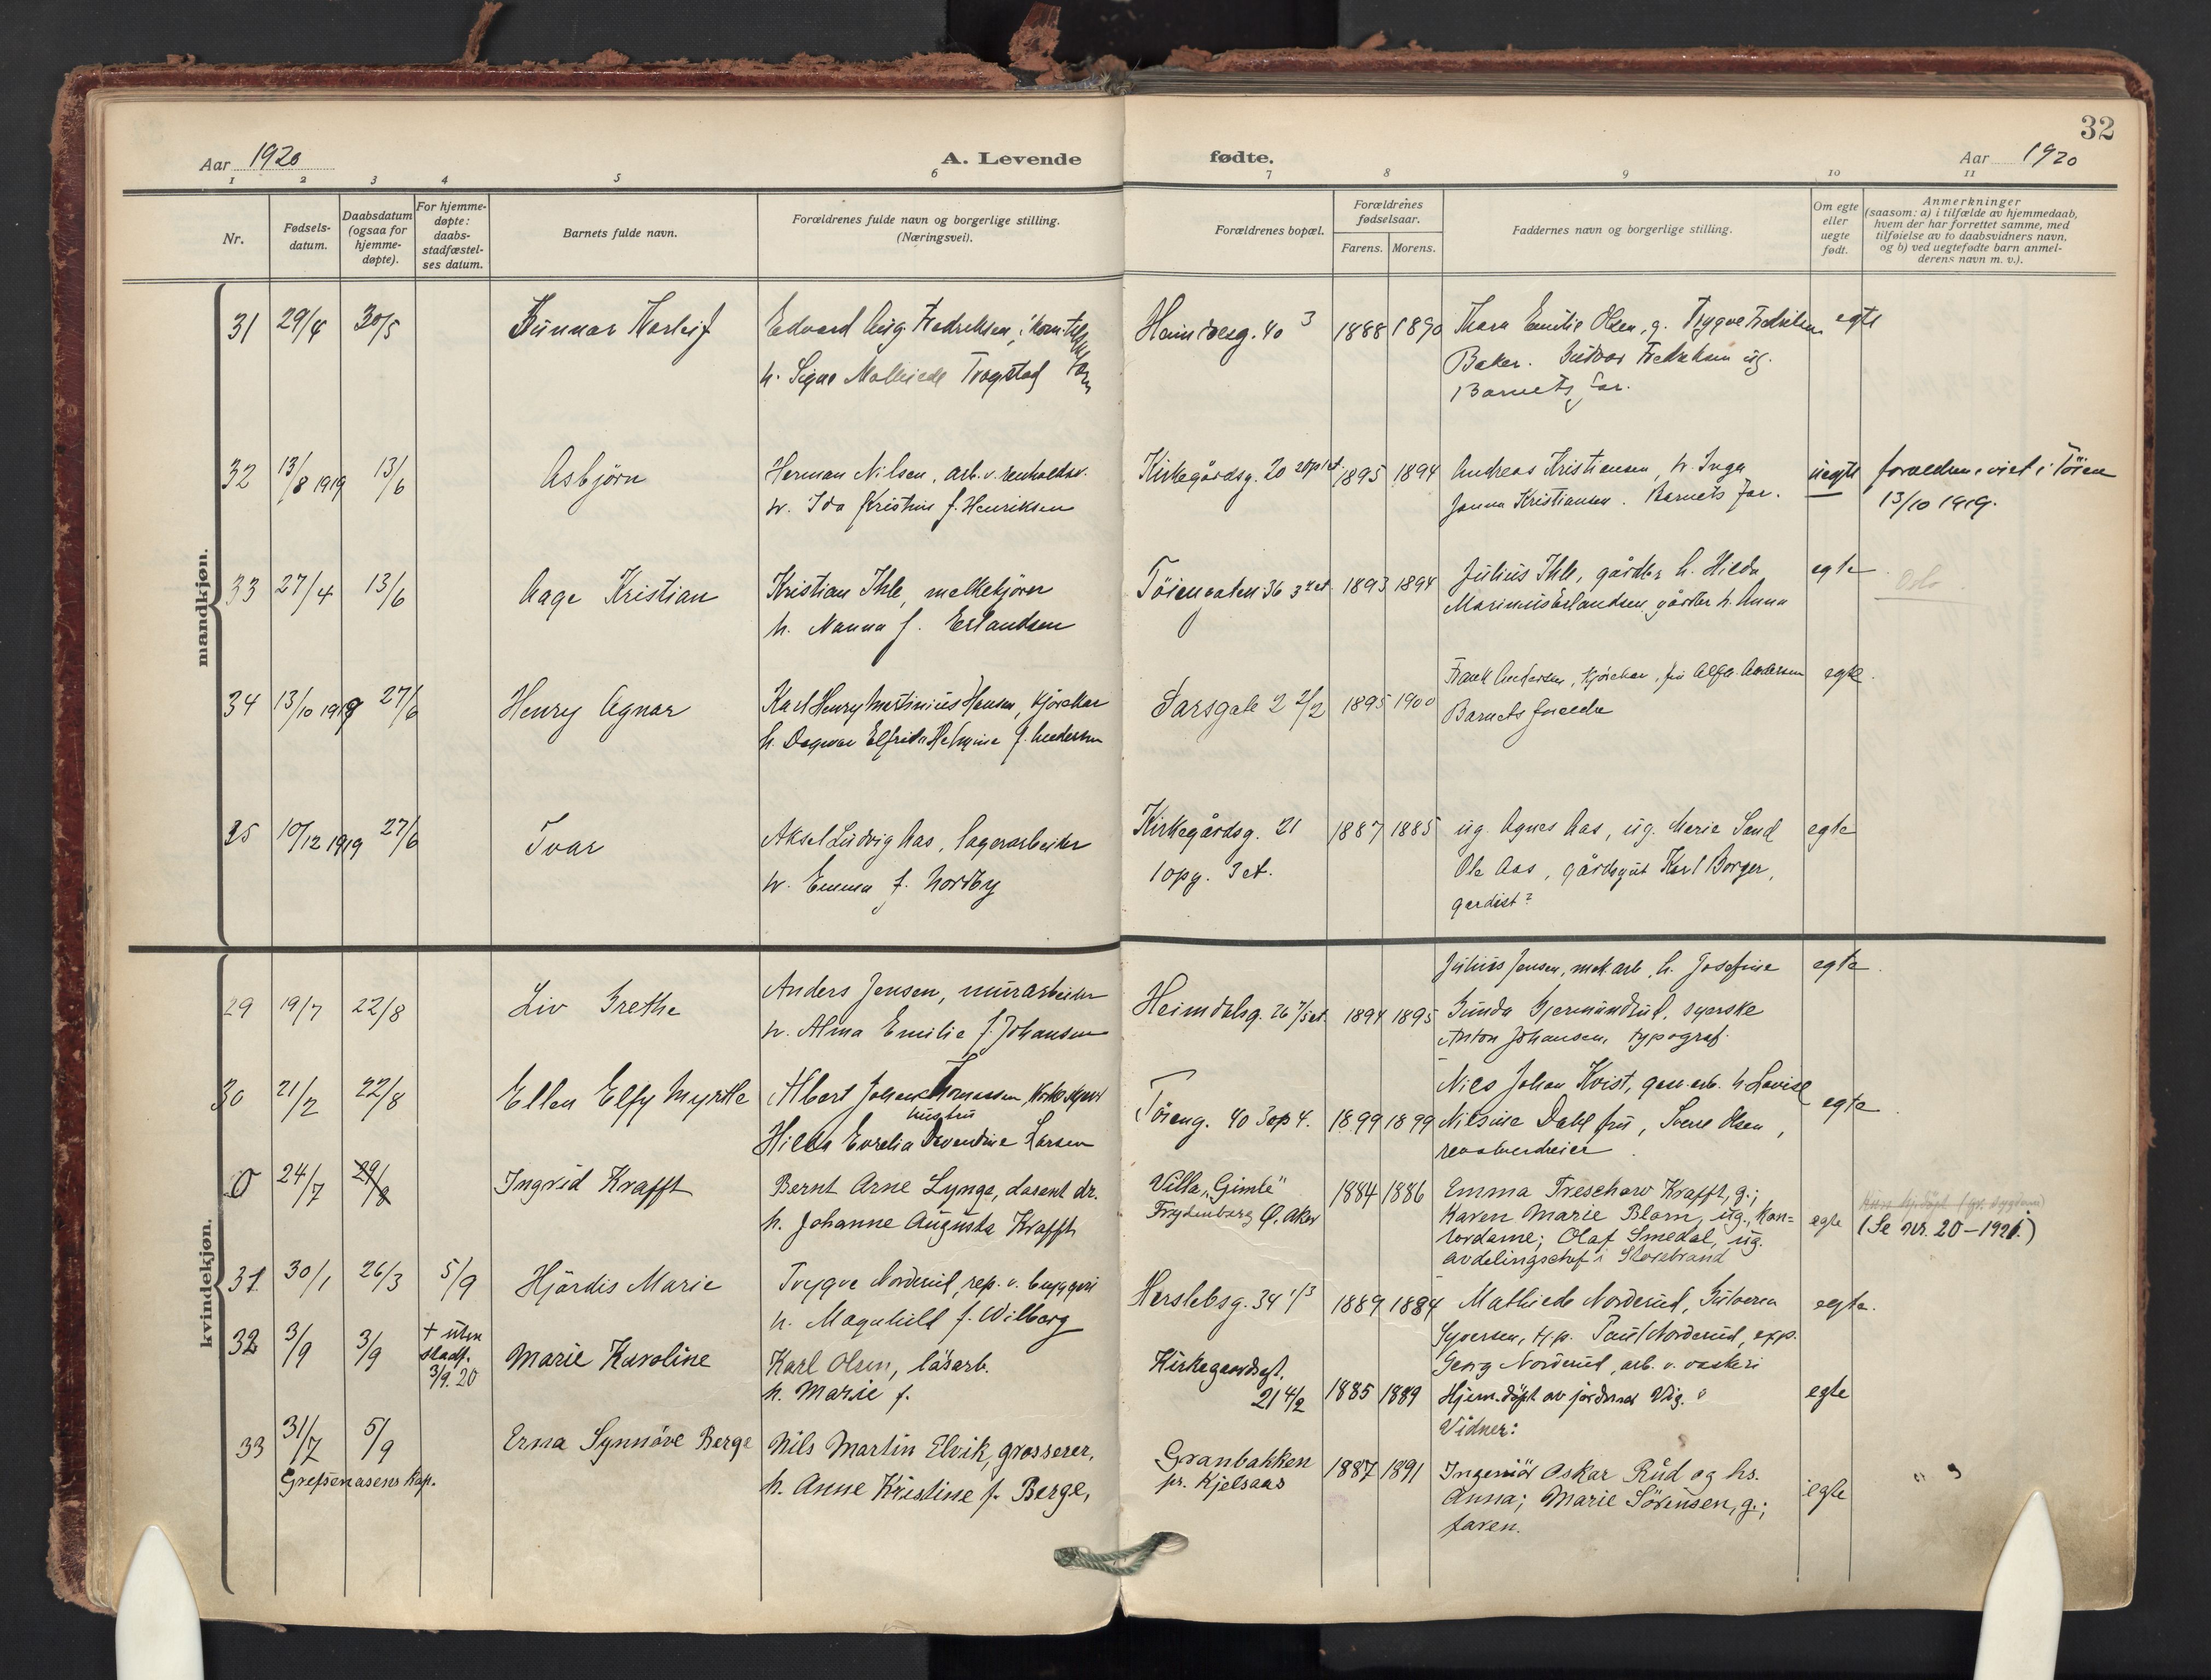 32
Aar 1920
A. Levende
fødte.
Aar 1920
1 2 3 4 5 6 7 8 9 10 11
Nr.
Fødsels-
datum.
Daabsdatum
(ogsaa for
hjemme-
døpte).
For hjemme-
døpte:
daabs-
stadfæstel-
ses datum.
Barnets fulde navn.
Forældrenes fulde navn og borgerlige stilling.
(Næringsvei).
Forældrenes bopæl.
Forældrenes
fødselsaar.
Farens. Morens.
Faddernes navn og borgerlige stilling.
Om egte
eller
uegte
født.
Anmerkninger
(saasom: a) i tilfælde av hjemmedaab,
hvem der har forrettet samme, med
tilføielse av to daabsvidners navn,
og b) ved uegtefødte barn anmel-
derens navn m. v.).
mandkjøn.
31 29/4 30/5
Gunnar Harleif
Edvard Aug. Fredriksen,
h. Signe Mathilde Trøgstad
40 3
1888 1890
Thora Emilie Olsen, g. Trygve Fredriksen
Baker. Gudvor Fredriksen ug.
Barnets far.
egte
32 13/8 1919 13/6
Asbjørn
Herman Nilsen, arb. v. renholdsv.
h. Ida Kristine f. Henriksen
Kirkegårdsg. 20
1895 1894
Andreas Kristiansen, h. Inga
Janna Kristiansen. Barnets far.
uegte
forældrene viet i Tøien
13/10 1919.
33 27/4 13/6
Aage Kristian
Kristian Ihle, melkekjører
h. Nanna f. Erlandsen
Tøiengaten 36 3 et
1893 1894
Julius Ihle, gårdbr. h. Hilda
Marinius Erlandsen gårdbr h. Anna
egte
Oslo
34 13/10 1919 27/6
Henry Agnar
Karl Henry Martinius Hansen, kjørekar
h. Dagmar Elfrida Helmine f. Andersen
Sarsgate 2 2/2
1895 1900
Frank Andersen, kjørekar, fru Alfh. Andersen
Barnets forældre
egte
35 10/12 1919 27/6
Ivar
Aksel Ludvig Aas, lagerarbeider
h. Emma f. Nordby
Kirkegårdsg. 21
1 opg. 3 et.
1887 1885
ug. Agnes Aas, ug. Marie Sand
Ole Aas, gårdsgut Karl Borger,
gardist?
egte
kvindekjøn.
29 19/7 22/8
Liv Grethe
Anders Jensen, murarbeider
h. Alma Emilie f. Johansen
Heimdalsg. 26
1894 1895
Julius Jensen, mek. arb. h. Josefine
Gunda Gjermundrud, syerske
Anton Johansen, typograf.
egte
30 21/2 22/8
Ellen Elfy Myrtle
Albert Johan Thomassen
hustru
Hilda Evrelia Levendine Larsen
Tøieng. 40 3 op 4.
1899 1899
Nils Johan Kvist, gass. arb. h. Lovise
Nilsine Dahl fru, Sverre Olsen,
revolverdreier
egte
0 24/7 29/8
Ingrid Krafft
Bernt Arne Lynge, dosent dr.
h. Johanne Augusta Krafft
Villa "Gimle"
Frydenberg Ø. Aker
1884 1886
Emma Treschow Krafft, g.;
Karen Marie Blom, ug., kon=
tordame; Olaf Smedal, ug.
avdelingschef i Storebrand
egte
(Se nr. 20-1921.)
31 30/1 26/3 5/9
Hjørdis Marie
Trygve Norderud, rep. v. bryggeri
h. Magnhild f. Wilberg
Herslebsg. 34 1/3
1889 1884
Mathilde Norderud, Gulvena
Syversen, Paul Norderud, exp.
Georg Norderud, arb. v. vaskeri
egte.
32 3/9 3/9
+ uten
stadf.
3/9. 20
Marie Karoline
Karl Olsen, løsarb.
h. Marie f.
Kirkegaardsgt.
21 4/2
1885 1889
Hjem.døpt av jordmor Vig.
Vidner:
egte
33 31/7 5/9
Grefsenaasens Kap.
Erna Synnøve Berge
Nils Martin Elvik, grosserer,
h. Anne Kristine f. Berge,
Granbakken
pr. Kjelsaas
1887 1891
Ingeniør Oskar Rud og hs.
Anna; Marie Sørensen, g.;
faren.
egte